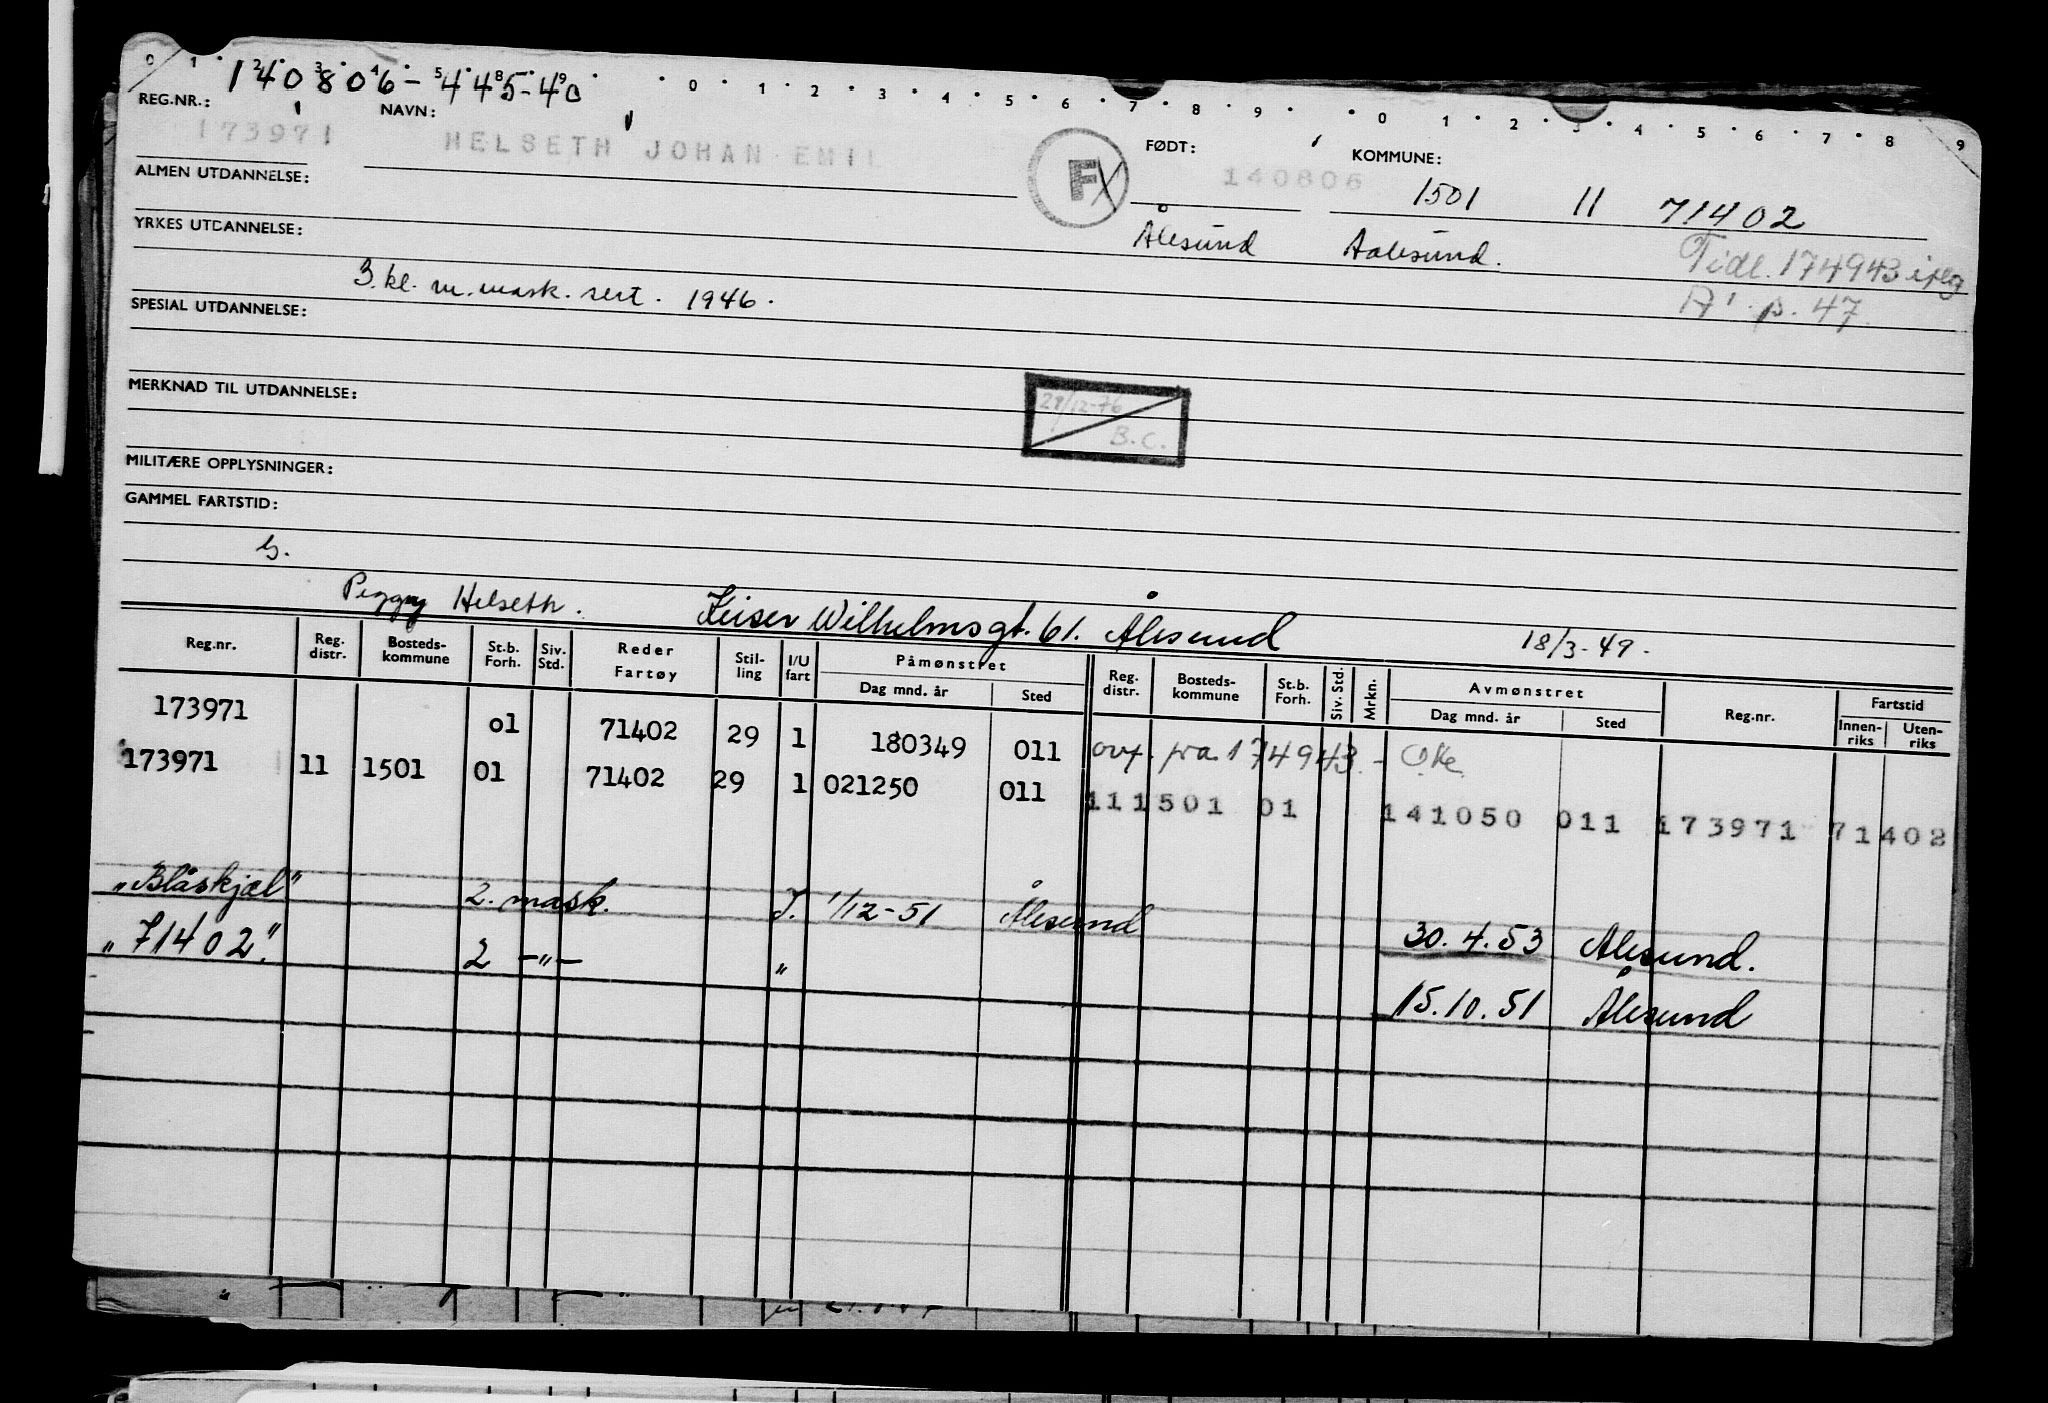 0 1 2 3 4 5 8 9 0 1 2 3 4 5 6 7 8 9 0 1 2 3 4 5 6 7 8 9
140806-445-40
REG.NR.: NAVN: FØDT: KOMMUNE:
173971 HELSETH JOHAN EMIL F 140806 1501 11 71402
ALMEN UTDANNELSE:
Ålesund Aalesund. Tidl. 174943 iflg
YRKES UTDANNELSE:
A' p. 47
3.kl. m. mask. sert. 1946.
SPESIAL UTDANNELSE:
MERKNAD TIL UTDANNELSE:
29/12-76
B.C.
MILITÆRE OPPLYSNINGER:
GAMMEL FARTSTID:
G.
Peggy Helseth. Keiser Wilhelmsgt. 61. Ålesund 18/3-49.
Reg.nr. Reg. distr. Bosteds-kommune St.b. Forh. Siv. Std. Reder Fartøy Stil-ling I/U fart Påmønstret Dag mnd. år Sted Reg. distr. Bosteds-kommune St.b. Forh. Siv. Std. Mrkn. Avmønstret Dag mnd. år Sted Reg.nr. Fartstid Innen-riks Uten-riks
173971 01 71402 29 1 180349 011 ovf. fra 174943.-
173971 11 1501 01 71402 29 1 021250 011 111501 01 141050 011 173971 71402
"Blåskjæl" 2. mask. I. 1/12-51 Ålesund 30.4.53 Ålesund.
"71402." 2 -"- " 15.10.51 Ålesund